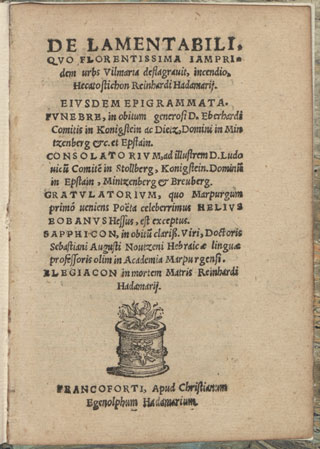 DE LAMENTABILI,
QVO FLORENTISSIMA IAMPRI-
dem urbs Vilmaria deflagrauit, incendio,
Hecatostichon Reinhardi Hadamarij.
EIVSDEM EPIGRAMMATA.
FVNEBRE, in obitum generosi D. Eberhardi
Comitis in Konigstein ac Dietz, Domini in Min
tzenberg &c. et Epstain.
CONSOLATORIVM, ad illustrem D. Ludo
uicũ Comitẽ in Stollberg, Konigstein. Dominũ
in Epstain, Mintzenberg & Breuberg.
GRATVLATORIVM, quo Marpurgum
primò ueniens Poëta celeberrimus HELIVS
EOBANVS Hessus, est exceptus.
SAPPHICON, in obitũ clariß. Viri, Doctoris
Sebastiani Augusti Nouzeni Hebraicæ linguæ
professoris olim in Academia Marpurgensi.
ELEGIACON in mortem Matris Reinhardi
Hadamarij.
FRANCOFORTI, Apud Christianum
Egenolphum Hadamarium.